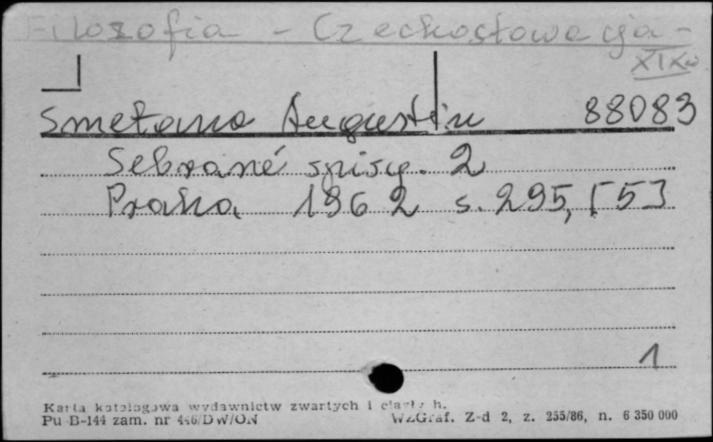 Filozofia - Czechosłowacja -
XIX w
Smetana Augustin 88083
Sebrané spisy. 2
Praha 1962 s. 295, [5]
1
Karta katalogowa wydawnictw zwartych i ciągłych.
Pu-B-144 zam. nr 446/DW/ON WZGraf. Z-d 2, z. 255/86, n. 6 350 000